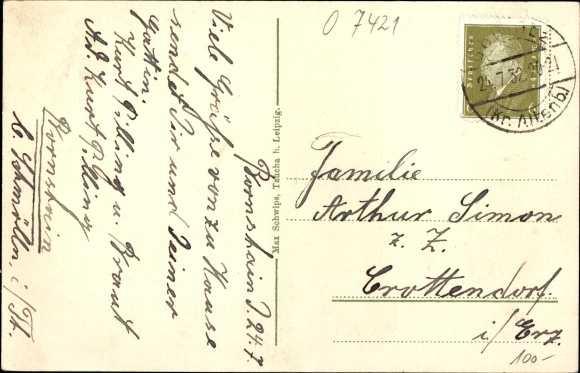 O 7421
Bornshain d. 24.7.
Viele Grüße von zu Hause
sendet Dir und Deiner
Gattin.
Kurt Pilling u. Braut
Ad. Kurt Pilling
Bornshain
b. Schmölln. i/Th.
Max Schwips, Taucha b. Leipzig.
Deutsches
24.7.32
(Kr. Altenb)
Familie
Arthur Simon
z. Z.
Crottendorf.
i/Erz.
100-